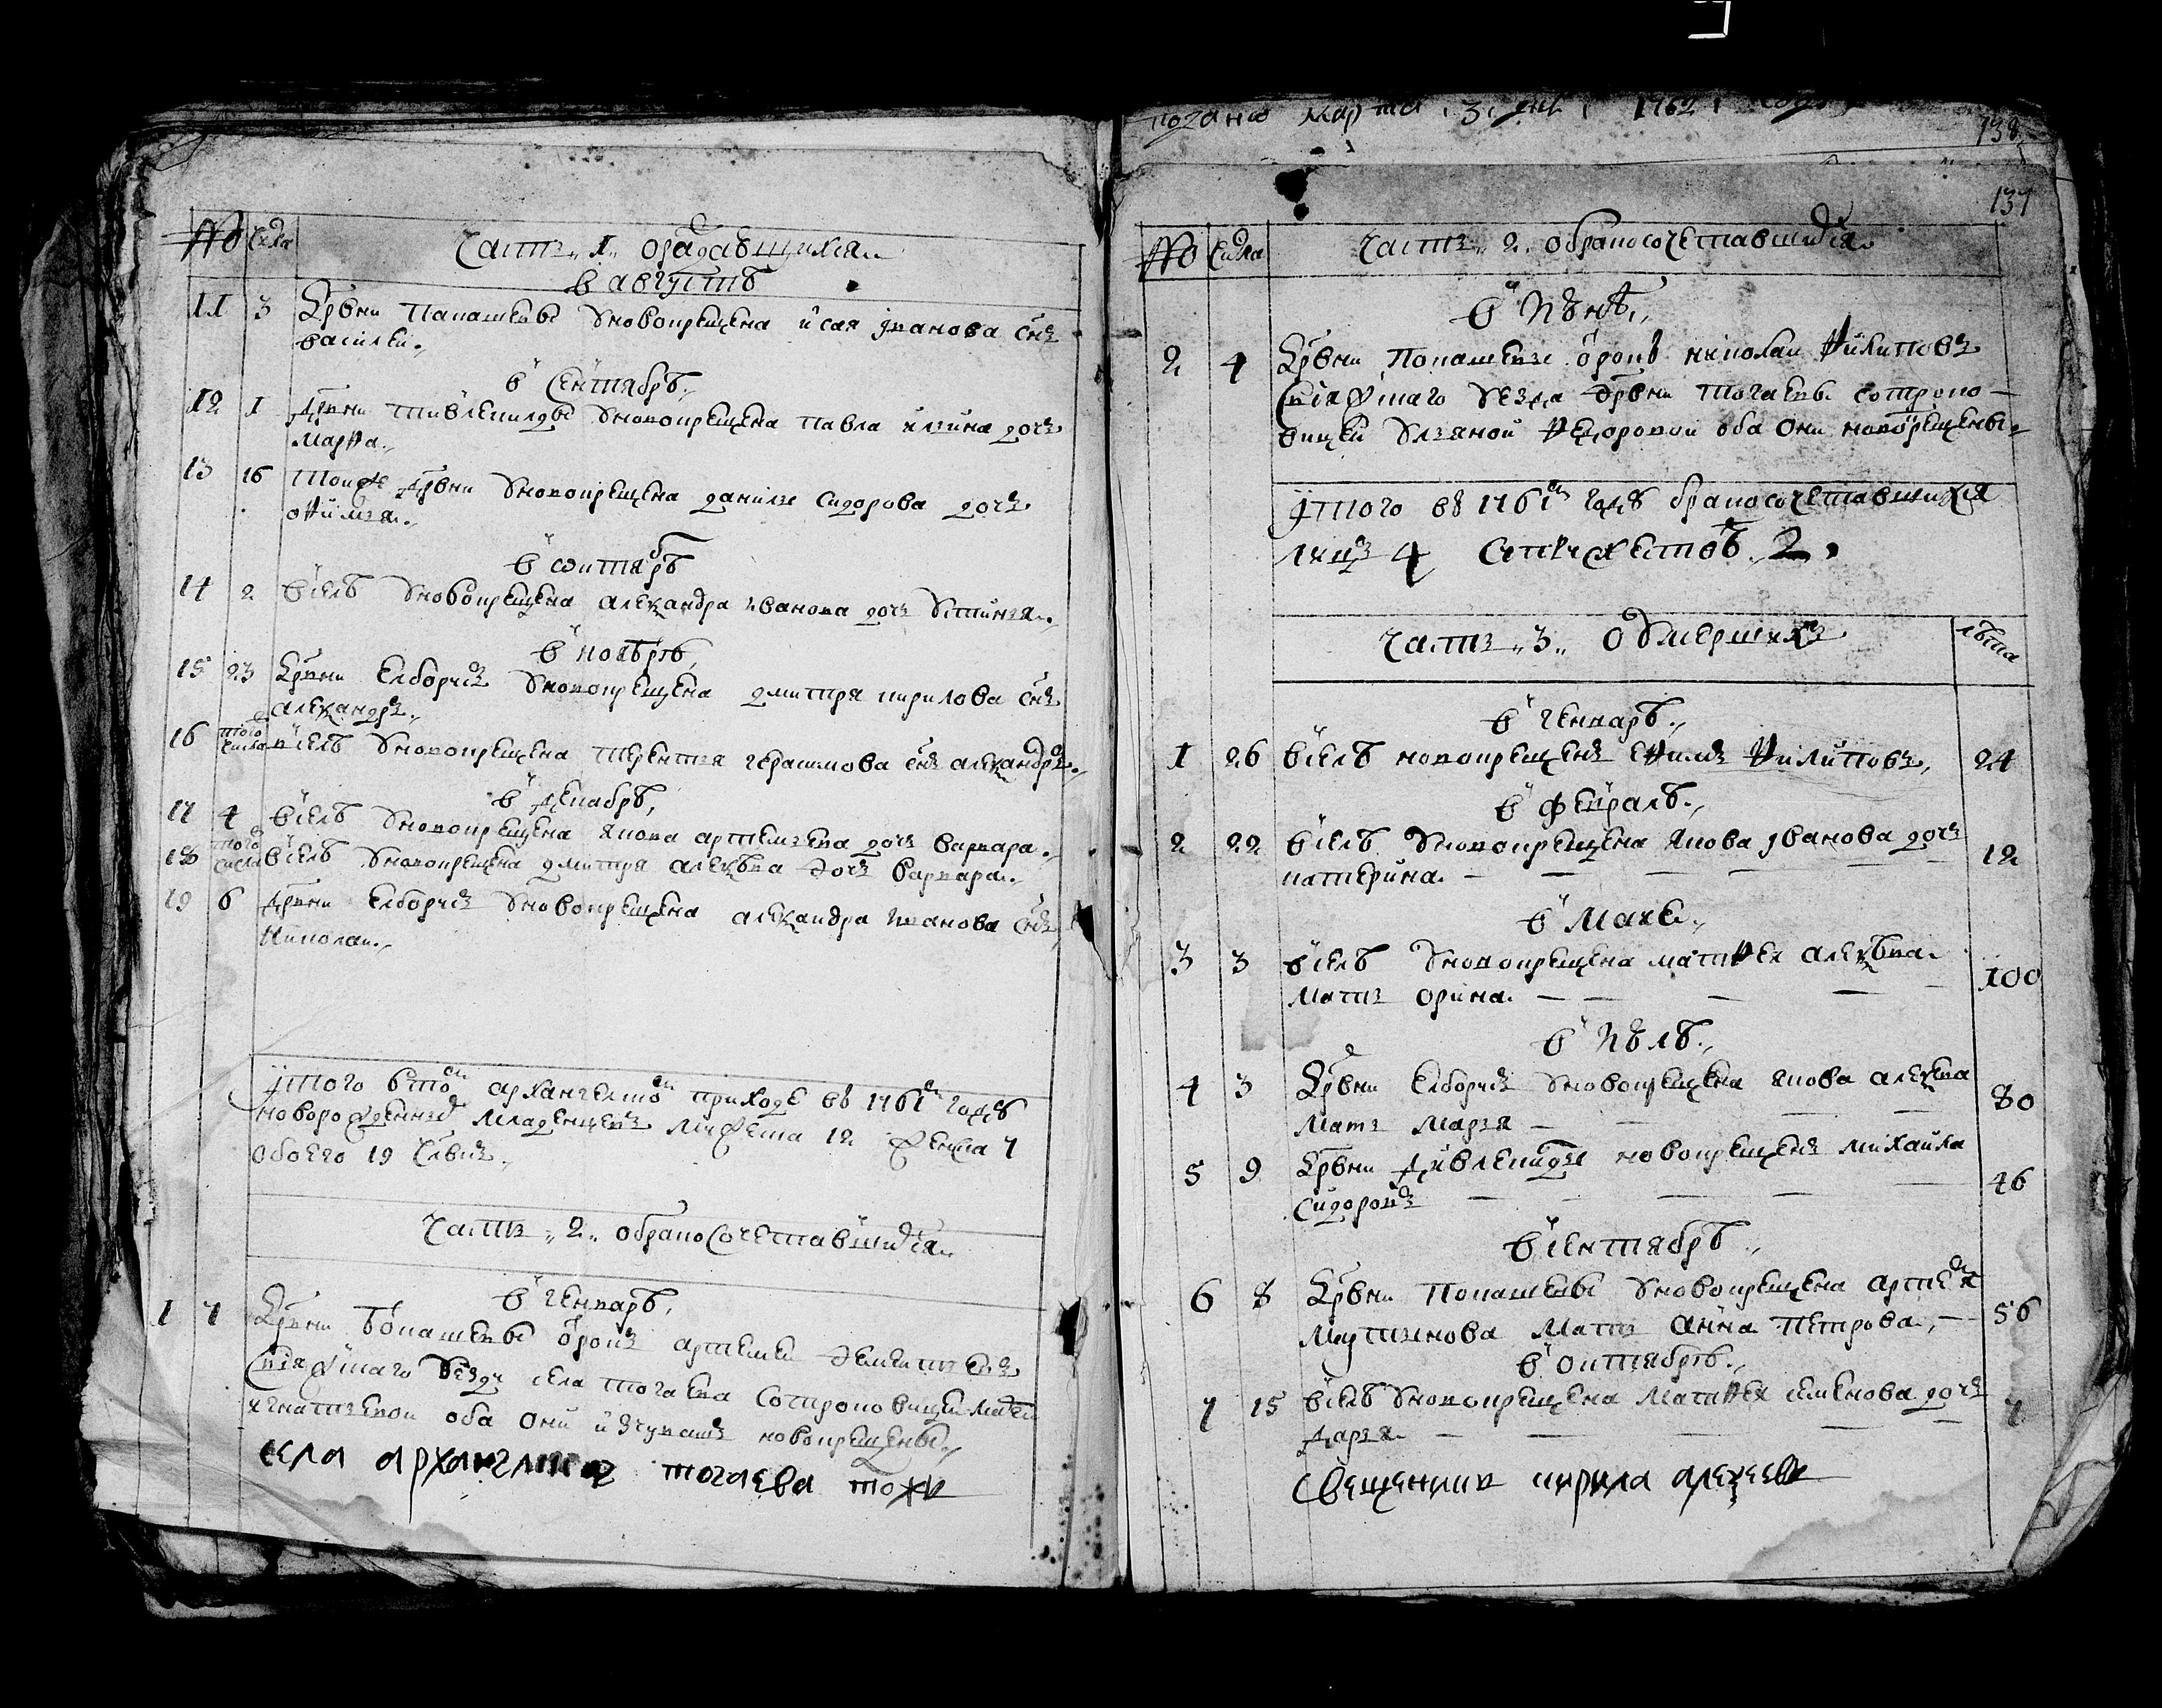 № Числа Часть 1 о раждавшихся
в августѣ
11 3 дрвни Папашевы у новокрещена исая иванова снъ
василеи
в сентябрѣ
12 1 дрвни у новокрещена павла илина дочь
марѳа
13 16 тоиже дрвни у новокрещена данилы сидорова дочь
оѳимья
в октябрѣ
14 2 в селѣ у новокрещена александра иванова дочь устинья
в ноябрѣ
15 23 дрвни Елборчъ у новокрещена дмитрия кирилова снъ
александръ
16 того числа в селѣ у новокрещена терентия герасимова снъ александръ
в декабрѣ
17 4 в селѣ у новокрещена якова артемьева дочь варвара
18 того числа в селѣ у новокрещена дмитрия алексѣева дочь варвара
19 6 дрвни Елборчъ у новокрещена александра иванова снъ
николаи
итого в томъ архангелскомъ приходе въ 1761м году
новорожденныхъ младенцевъ мужеска 12 женска 7
обоего 19 члвкъ
Часть 2 о бракосочетавшихся
в генварѣ
1 7 дрвни Попашевы отрокъ артемеи
Свияжскаго уезду села тогаева со отроковицеи
игнатьевои оба они новокрещены
села архангелское тогаева тожъ
подано марта 3 дня 1762 году
138
137
№ Числа Часть 2 о бракосочетавшихся
в июнѣ
2 4 дрвни Попашевы отрокъ николаи ѳилиповъ
Свияжскаго уезда дрвни тогаевы со отроко-
вицеи ульяной ѳедоровои оба они новокрещены
итого въ 1761м году бракосочетавшихся
лицъ 4 супружествъ 2
Часть 3 о умершихъ лѣта
в генварѣ
1 26 в селѣ новокрещенъ еѳимъ ѳилиповъ 24
в февралѣ
2 22 в селѣ у новокрещена якова иванова дочь 12
катерина
в маие
3 3 в селѣ у новокрещена матѳея алексѣева 100
мать орина
в июлѣ
4 3 дрвни Елборчъ у новокрещена якова алексѣева 80
мать марья
5 9 дрвни новокрещенъ михаила 46
сидоровъ
в сентябрѣ
6 8 дрвни Попашевы у новокрещена артемья 56
мартынова мать анна петрова
в октябрѣ
7 15 в селѣ у новокрещена матѳея семенова дочь 7
дарья
священникъ кирила алексеевъ